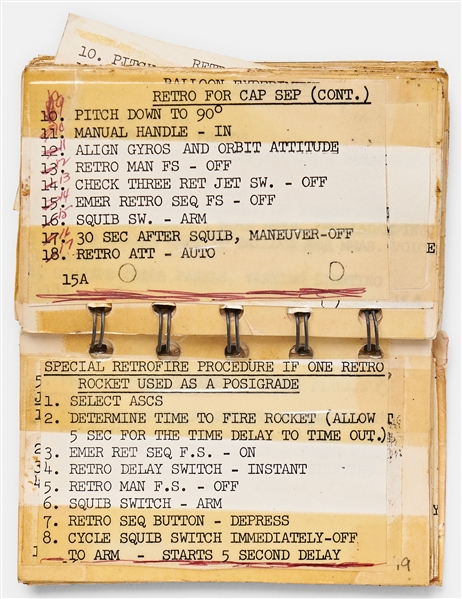 10. PITCH RETR
BALLOON EXPERIMENT
RETRO FOR CAP SEP (CONT.)
10. PITCH DOWN TO 90°
11. MANUAL HANDLE - IN
12. ALIGN GYROS AND ORBIT ATTITUDE
13. RETRO MAN FS - OFF
14. CHECK THREE RET JET SW. - OFF
15. EMER RETRO SEQ FS - OFF
16. SQUIB SW. - ARM
17. 30 SEC AFTER SQUIB, MANEUVER-OFF
18. RETRO ATT - AUTO
15A
SPECIAL RETROFIRE PROCEDURE IF ONE RETRO
ROCKET USED AS A POSIGRADE
1. SELECT ASCS
2. DETERMINE TIME TO FIRE ROCKET (ALLOW
5 SEC FOR THE TIME DELAY TO TIME OUT.)
3. EMER RET SEQ F.S. - ON
4. RETRO DELAY SWITCH - INSTANT
5. RETRO MAN F.S. - OFF
6. SQUIB SWITCH - ARM
7. RETRO SEQ BUTTON - DEPRESS
8. CYCLE SQUIB SWITCH IMMEDIATELY-OFF
TO ARM - STARTS 5 SECOND DELAY
19